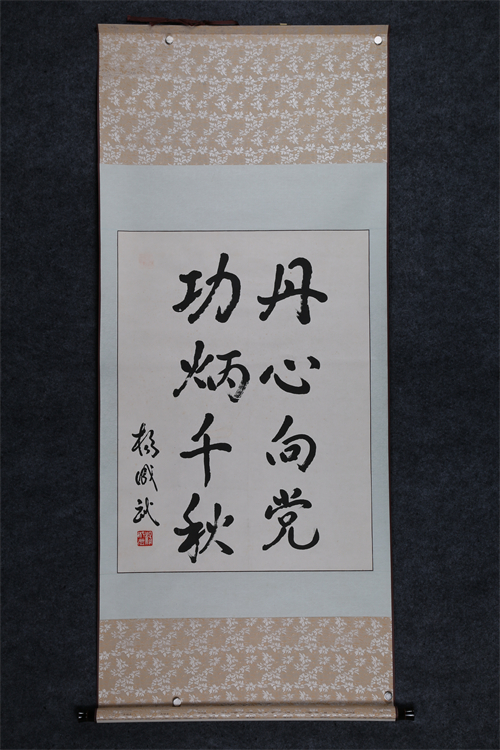 丹心向党
功炳千秋
杨成武